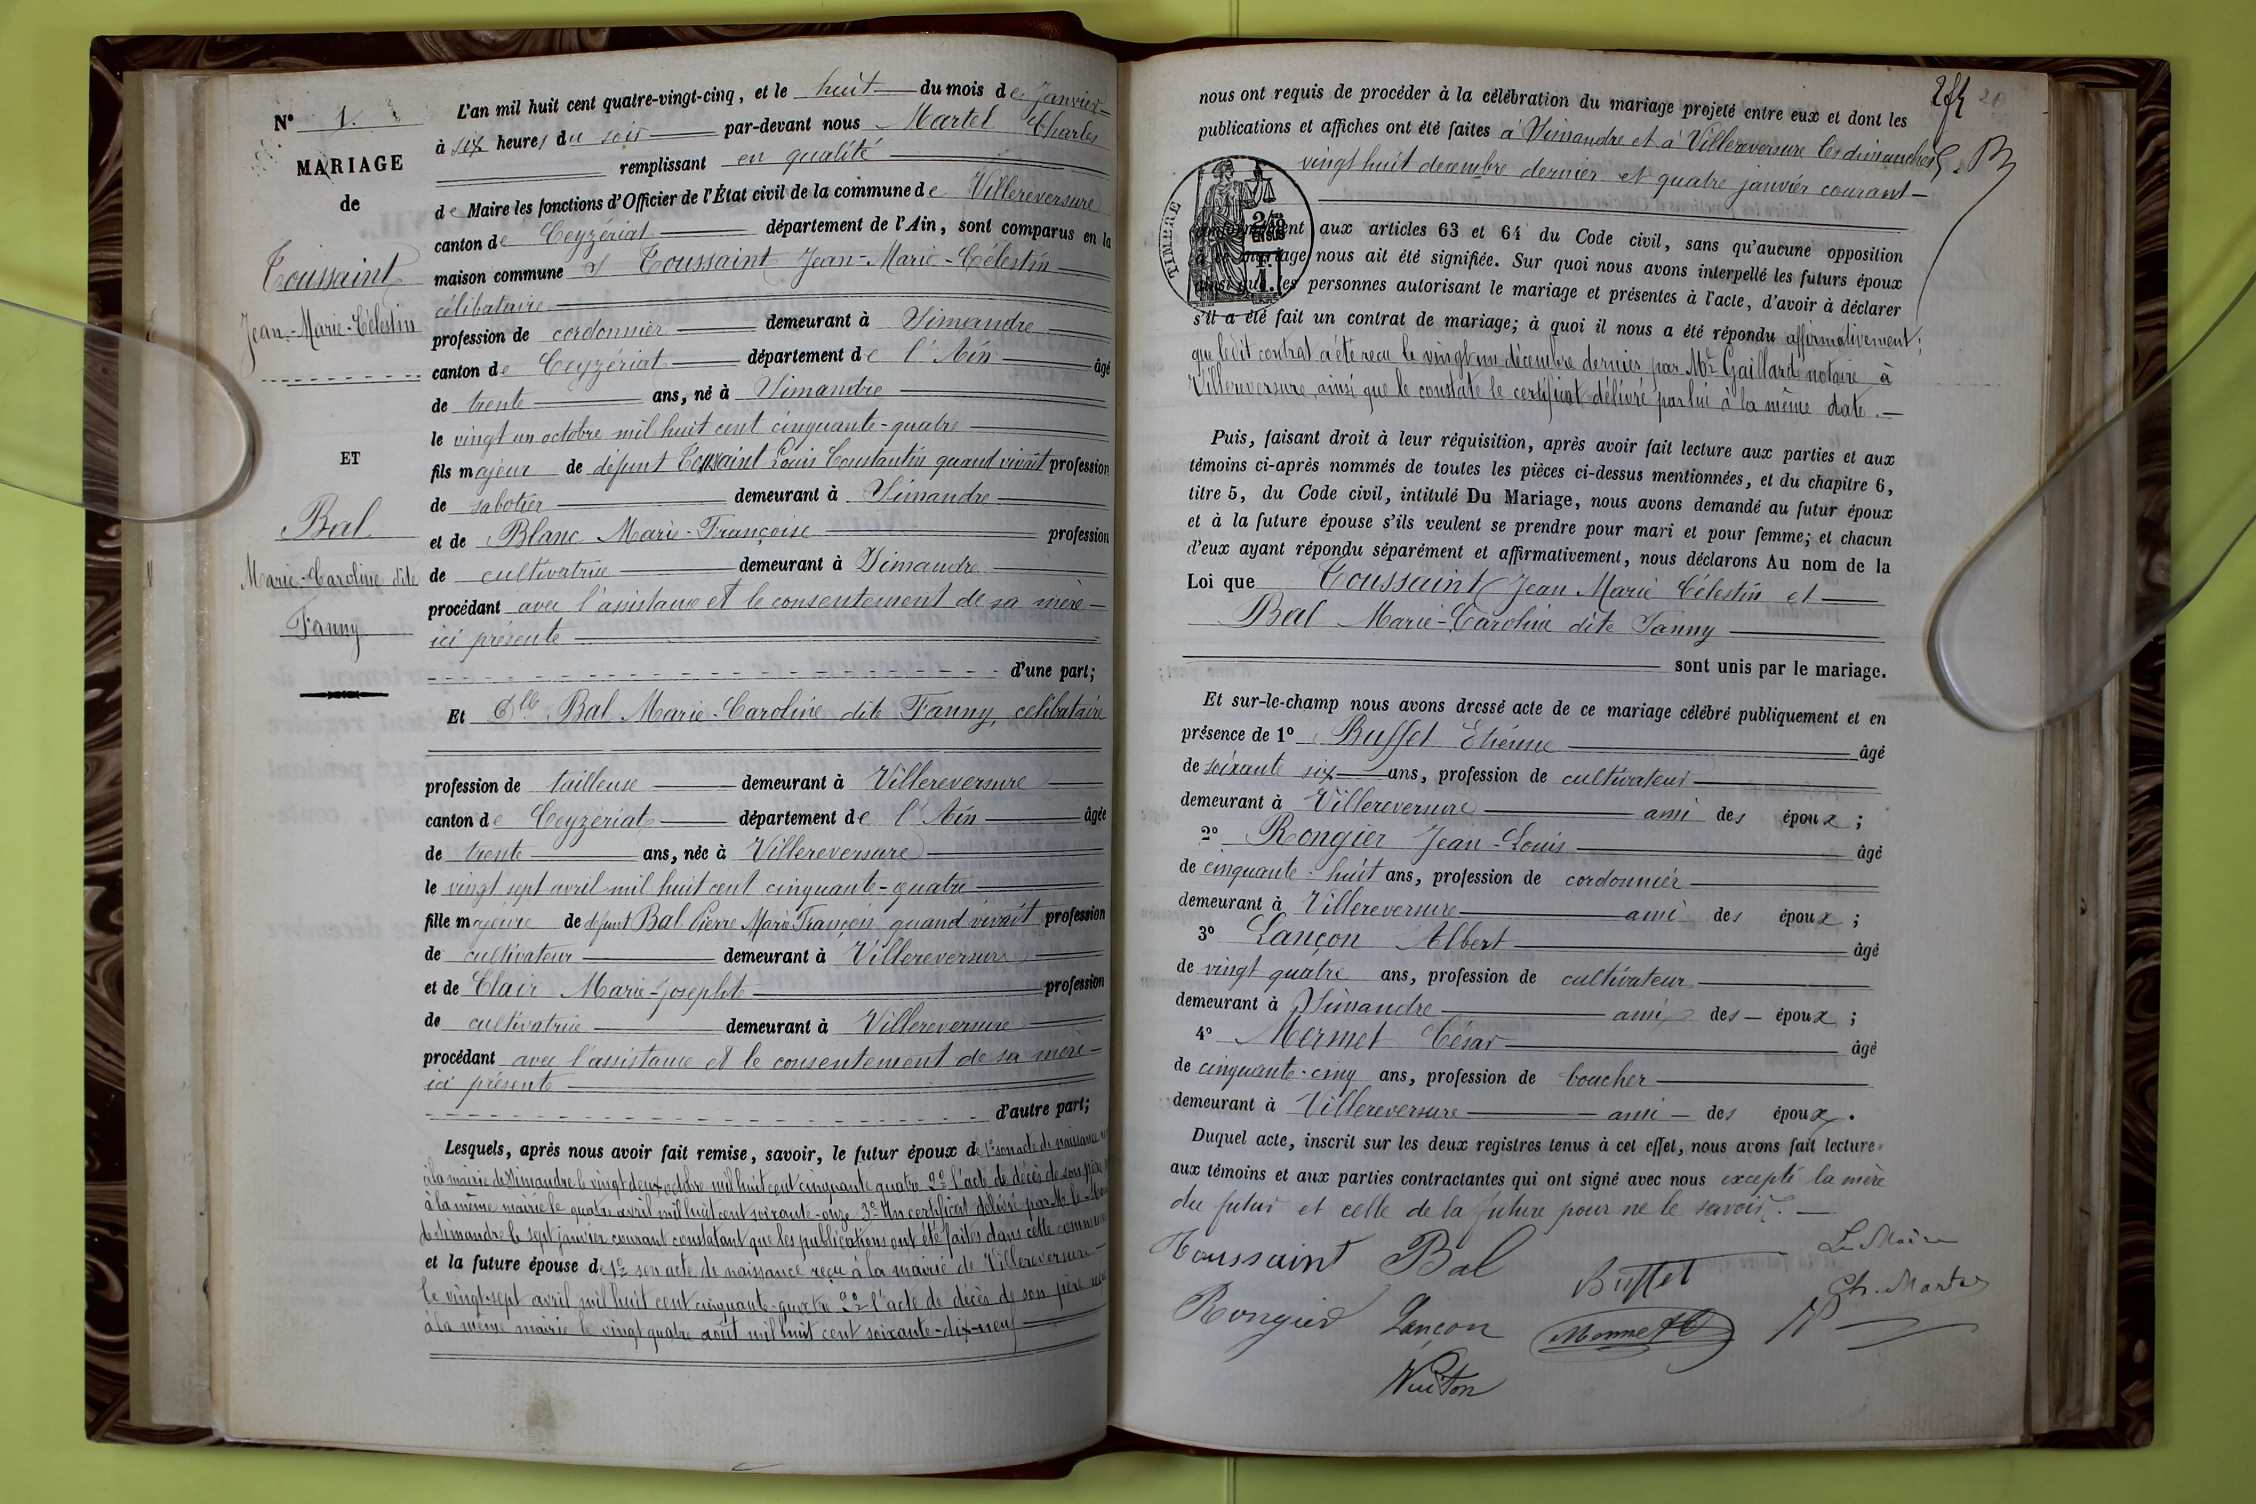 N° 1.
MARIAGE
de
Toussaint
Jean-Marie-Célestin
ET
Bal
Marie-Caroline dite
Fanny
L'an mil huit cent quatre-vingt-cinq, et le huit du mois de Janvier
à six heures du soir par-devant nous Martel Charles
remplissant en qualité
de Maire les fonctions d'Officier de l'État civil de la commune de Villereversure
canton de Ceyzériat département de l'Ain, sont comparus en la
maison commune Toussaint Jean-Marie-Célestin
célibataire
profession de cordonnier demeurant à Simandre
canton de Ceyzériat département de l'Ain âgé
de trente ans, né à Simandre
le vingt un octobre mil huit cent cinquante-quatre
fils majeur de défunt Toussaint Louis Constantin quand vivait profession
de sabotier demeurant à Simandre
et de Blanc Marie-Françoise profession
de cultivatrice demeurant à Simandre
procédant avec l'assistance et le consentement de sa mère
ici présente
d'une part;
Et Dlle Bal Marie-Caroline dite Fanny, célibataire
profession de tailleuse demeurant à Villereversure
canton de Ceyzériat département de l'Ain âgée
de trente ans, née à Villereversure
le vingt sept avril mil huit cent cinquante-quatre
fille majeure de défunt Bal Pierre Marie François quand vivait profession
de cultivateur demeurant à Villereversure
et de Clair Marie-Josephte profession
de cultivatrice demeurant à Villereversure
procédant avec l'assistance et le consentement de sa mère
ici présente
d'autre part;
Lesquels, après nous avoir fait remise, savoir, le futur époux de 1° son acte de naissance
à la mairie de Simandre le vingt deux octobre mil huit cent cinquante quatre 2° l'acte de décès de son père
à la même mairie le quatre avril mil huit cent soixante-onze 3° Un certificat délivré par Mr le Maire
de Simandre le sept janvier courant constatant que les publications ont été faites dans cette commune
et la future épouse de 1° son acte de naissance reçu à la mairie de Villereversure
le vingt-sept avril mil huit cent cinquante-quatre 2° l'acte de décès de son père
à la même mairie le vingt quatre août mil huit cent soixante-dix-neuf
nous ont requis de procéder à la célébration du mariage projeté entre eux et dont les
publications et affiches ont été faites à Simandre et à Villereversure les dimanches
vingt huit décembre dernier et quatre janvier courant
TIMBRE
EN SUS
conformément aux articles 63 et 64 du Code civil, sans qu'aucune opposition
à ce mariage nous ait été signifiée. Sur quoi nous avons interpellé les futurs époux
ainsi que les personnes autorisant le mariage et présentes à l'acte, d'avoir à déclarer
s'il a été fait un contrat de mariage; à quoi il nous a été répondu affirmativement;
que ledit contrat a été reçu le vingt un décembre dernier par Mr Gaillard notaire à
Villereversure, ainsi que le constate le certificat délivré par lui à la même date.
Puis, faisant droit à leur réquisition, après avoir fait lecture aux parties et aux
témoins ci-après nommés de toutes les pièces ci-dessus mentionnées, et du chapitre 6,
titre 5, du Code civil, intitulé Du Mariage, nous avons demandé au futur époux
et à la future épouse s'ils veulent se prendre pour mari et pour femme; et chacun
d'eux ayant répondu séparément et affirmativement, nous déclarons Au nom de la
Loi que Toussaint Jean Marie Célestin et
Bal Marie-Caroline dite Fanny
sont unis par le mariage.
Et sur-le-champ nous avons dressé acte de ce mariage célébré publiquement et en
présence de 1° Buffet Etienne âgé
de soixante six ans, profession de cultivateur
demeurant à Villereversure ami des époux;
2° Rongier Jean-Louis âgé
de cinquante-huit ans, profession de cordonnier
demeurant à Villereversure ami des époux;
3° Lançon Albert âgé
de vingt quatre ans, profession de cultivateur
demeurant à Simandre ami des époux;
4° Mermet César âgé
de cinquante-cinq ans, profession de boucher
demeurant à Villereversure ami des époux.
Duquel acte, inscrit sur les deux registres tenus à cet effet, nous avons fait lecture
aux témoins et aux parties contractantes qui ont signé avec nous excepté la mère
du futur et celle de la future pour ne le savoir.
Toussaint Bal Buffet Le Maire
Ch. Martel
Rongier Lançon Mermet